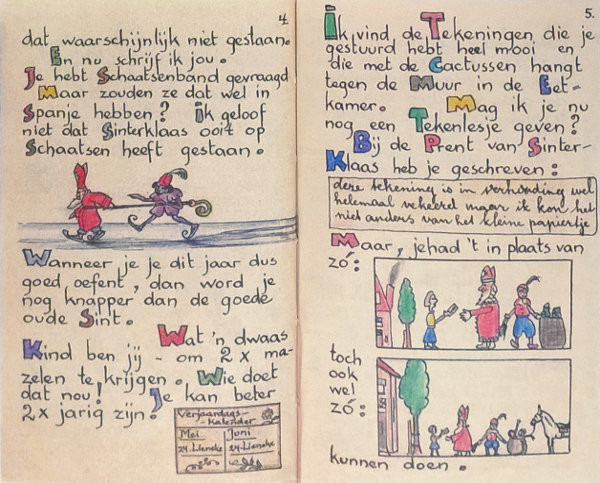 4.
dat waarschijnlijk niet gestaan.
En nu schrijf ik jou.
Je hebt Schaatsenband gevraagd
Maar zouden ze dat wel in
Spanje hebben? ik geloof
niet dat Sinterklaas ooit op
Schaatsen heeft gestaan.
Wanneer je je dit jaar dus
goed oefent, dan word je
nog knapper dan de goede
oude Sint.
Wat 'n dwaas
Kind ben jij - om 2 x ma-
zelen te krijgen. Wie doet
dat nou! Je kan beter
2x jarig zijn.
Verjaardags-
-kalender
Mei Juni
24-Lieneke 24-Lieneke
5.
Ik vind, de Tekeningen, die je
gestuurd hebt heel mooi en
die met de Cactussen hangt
tegen de Muur in de Eet-
kamer. Mag ik je nu
nog een Tekenlesje geven?
Bij de Prent van Sinter-
Klaas heb je geschreven:
deze tekening is in verhouding wel
helemaal verkeerd maar ik kon het
niet anders van het kleine papiertje
Maar, je had 't in plaats van
zó:
toch
ook
wel
zó:
kunnen doen.